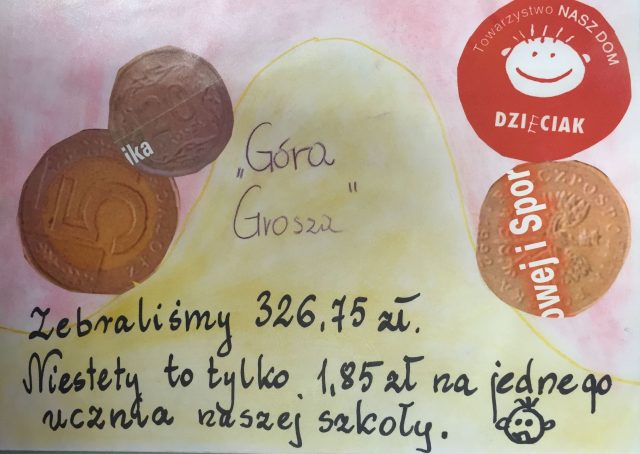 Towarzystwo NASZ DOM
DZIECIAK
ika
5
owej i Spor
„Góra
Grosza"
Zebraliśmy 326,75 zł.
Niestety to tylko 1,85 zł na jednego
ucznia naszej szkoły.